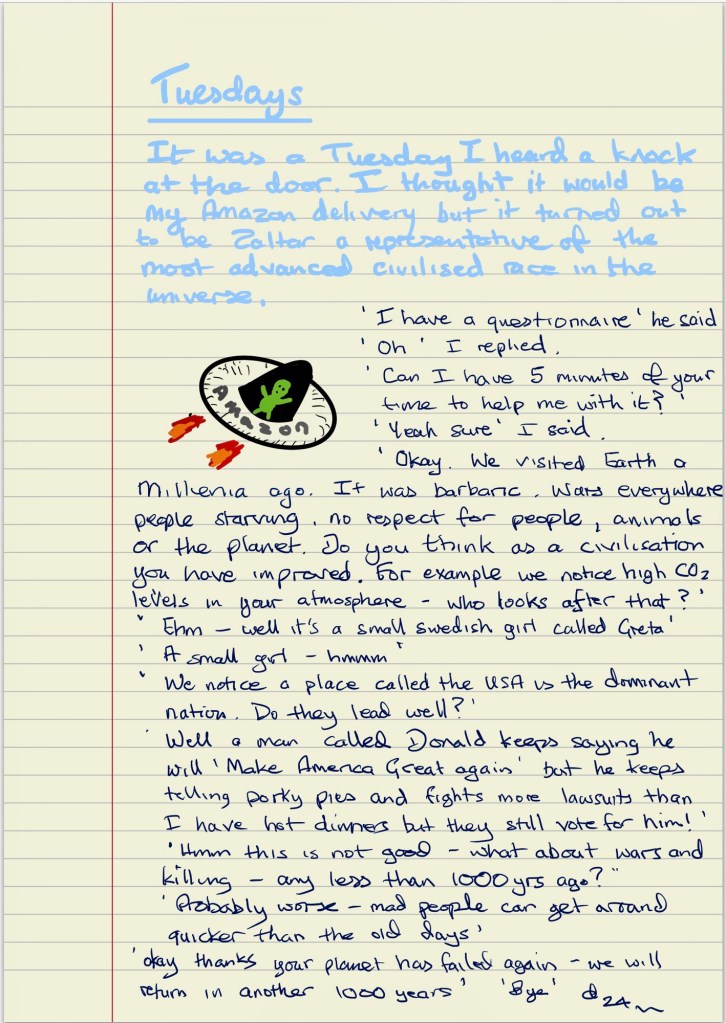 Tuesdays
It was a Tuesday I heard a knock
at the door. I thought it would be
my Amazon delivery but it turned out
to be Zaltar a representative of the
most advanced civilised race in the
universe.
'I have a questionnaire' he said
'Oh' I replied.
'Can I have 5 minutes of your
time to help me with it?'
'Yeah sure' I said.
'Okay. We visited Earth a
Amazon
Millenia ago. It was barbaric. Wars everywhere
people starving, no respect for people, animals
or the planet. Do you think as a civilisation
you have improved. For example we notice high CO2
levels in your atmosphere - who looks after that?'
'Ehm - well it's a small swedish girl called Greta'
'A small girl - hmmm'
'We notice a place called the USA is the dominant
nation. Do they lead well?'
'Well a man called Donald keeps saying he
will 'Make America Great again' but he keeps
telling porky pies and fights more lawsuits than
I have hot dinners but they still vote for him!'
'Hmm this is not good - what about wars and
killing - any less than 1000 yrs ago?"
'Probably worse - mad people can get around
quicker than the old days'
'okay thanks your planet has failed again - we will
return in another 1000 years' 'Bye'